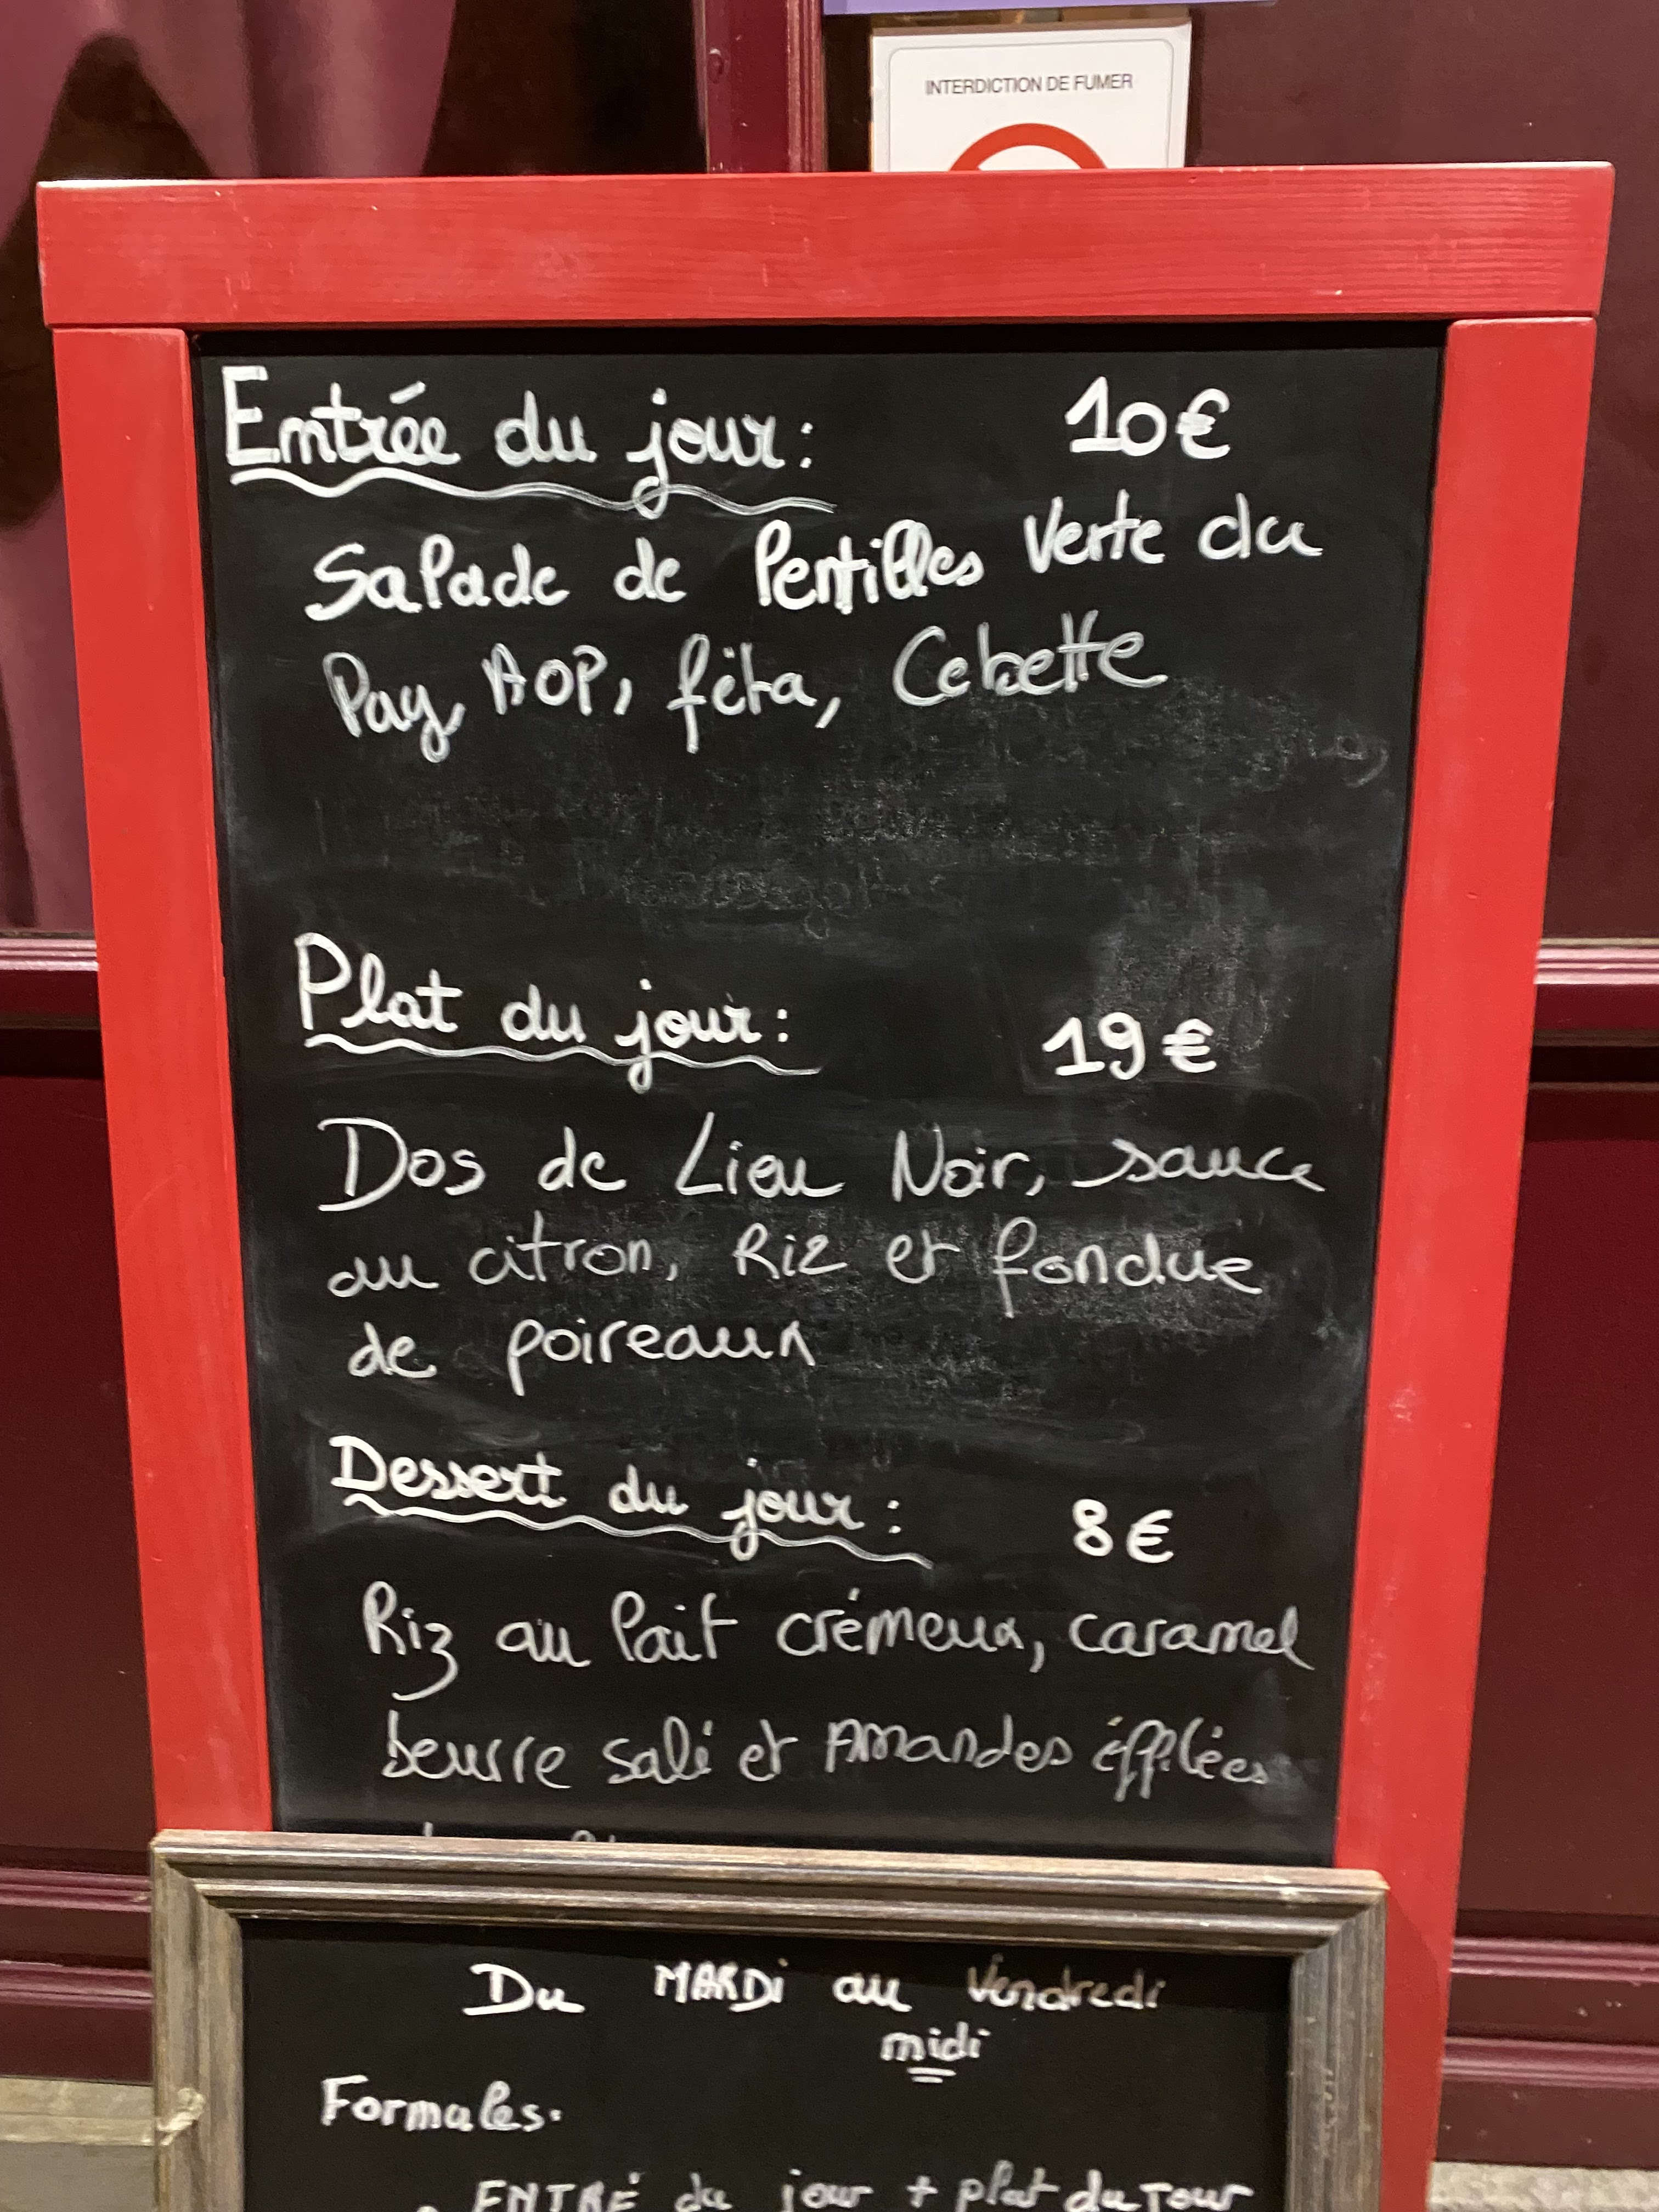 INTERDICTION DE FUMER
Entrée du jour: 10€
Salade de lentilles Verte du
Puy, AOP, fêta, Cebette
Plat du jour: 19€
Dos de Lieu Noir, sauce
au citron, Riz et fondue
de poireaux
Dessert du jour: 8€
Riz au lait crémeux, caramel
beurre salé et Amandes éffilées
Du MARDi au Vendredi
midi
Formules.
ENTRÉ du jour + plat du Jour